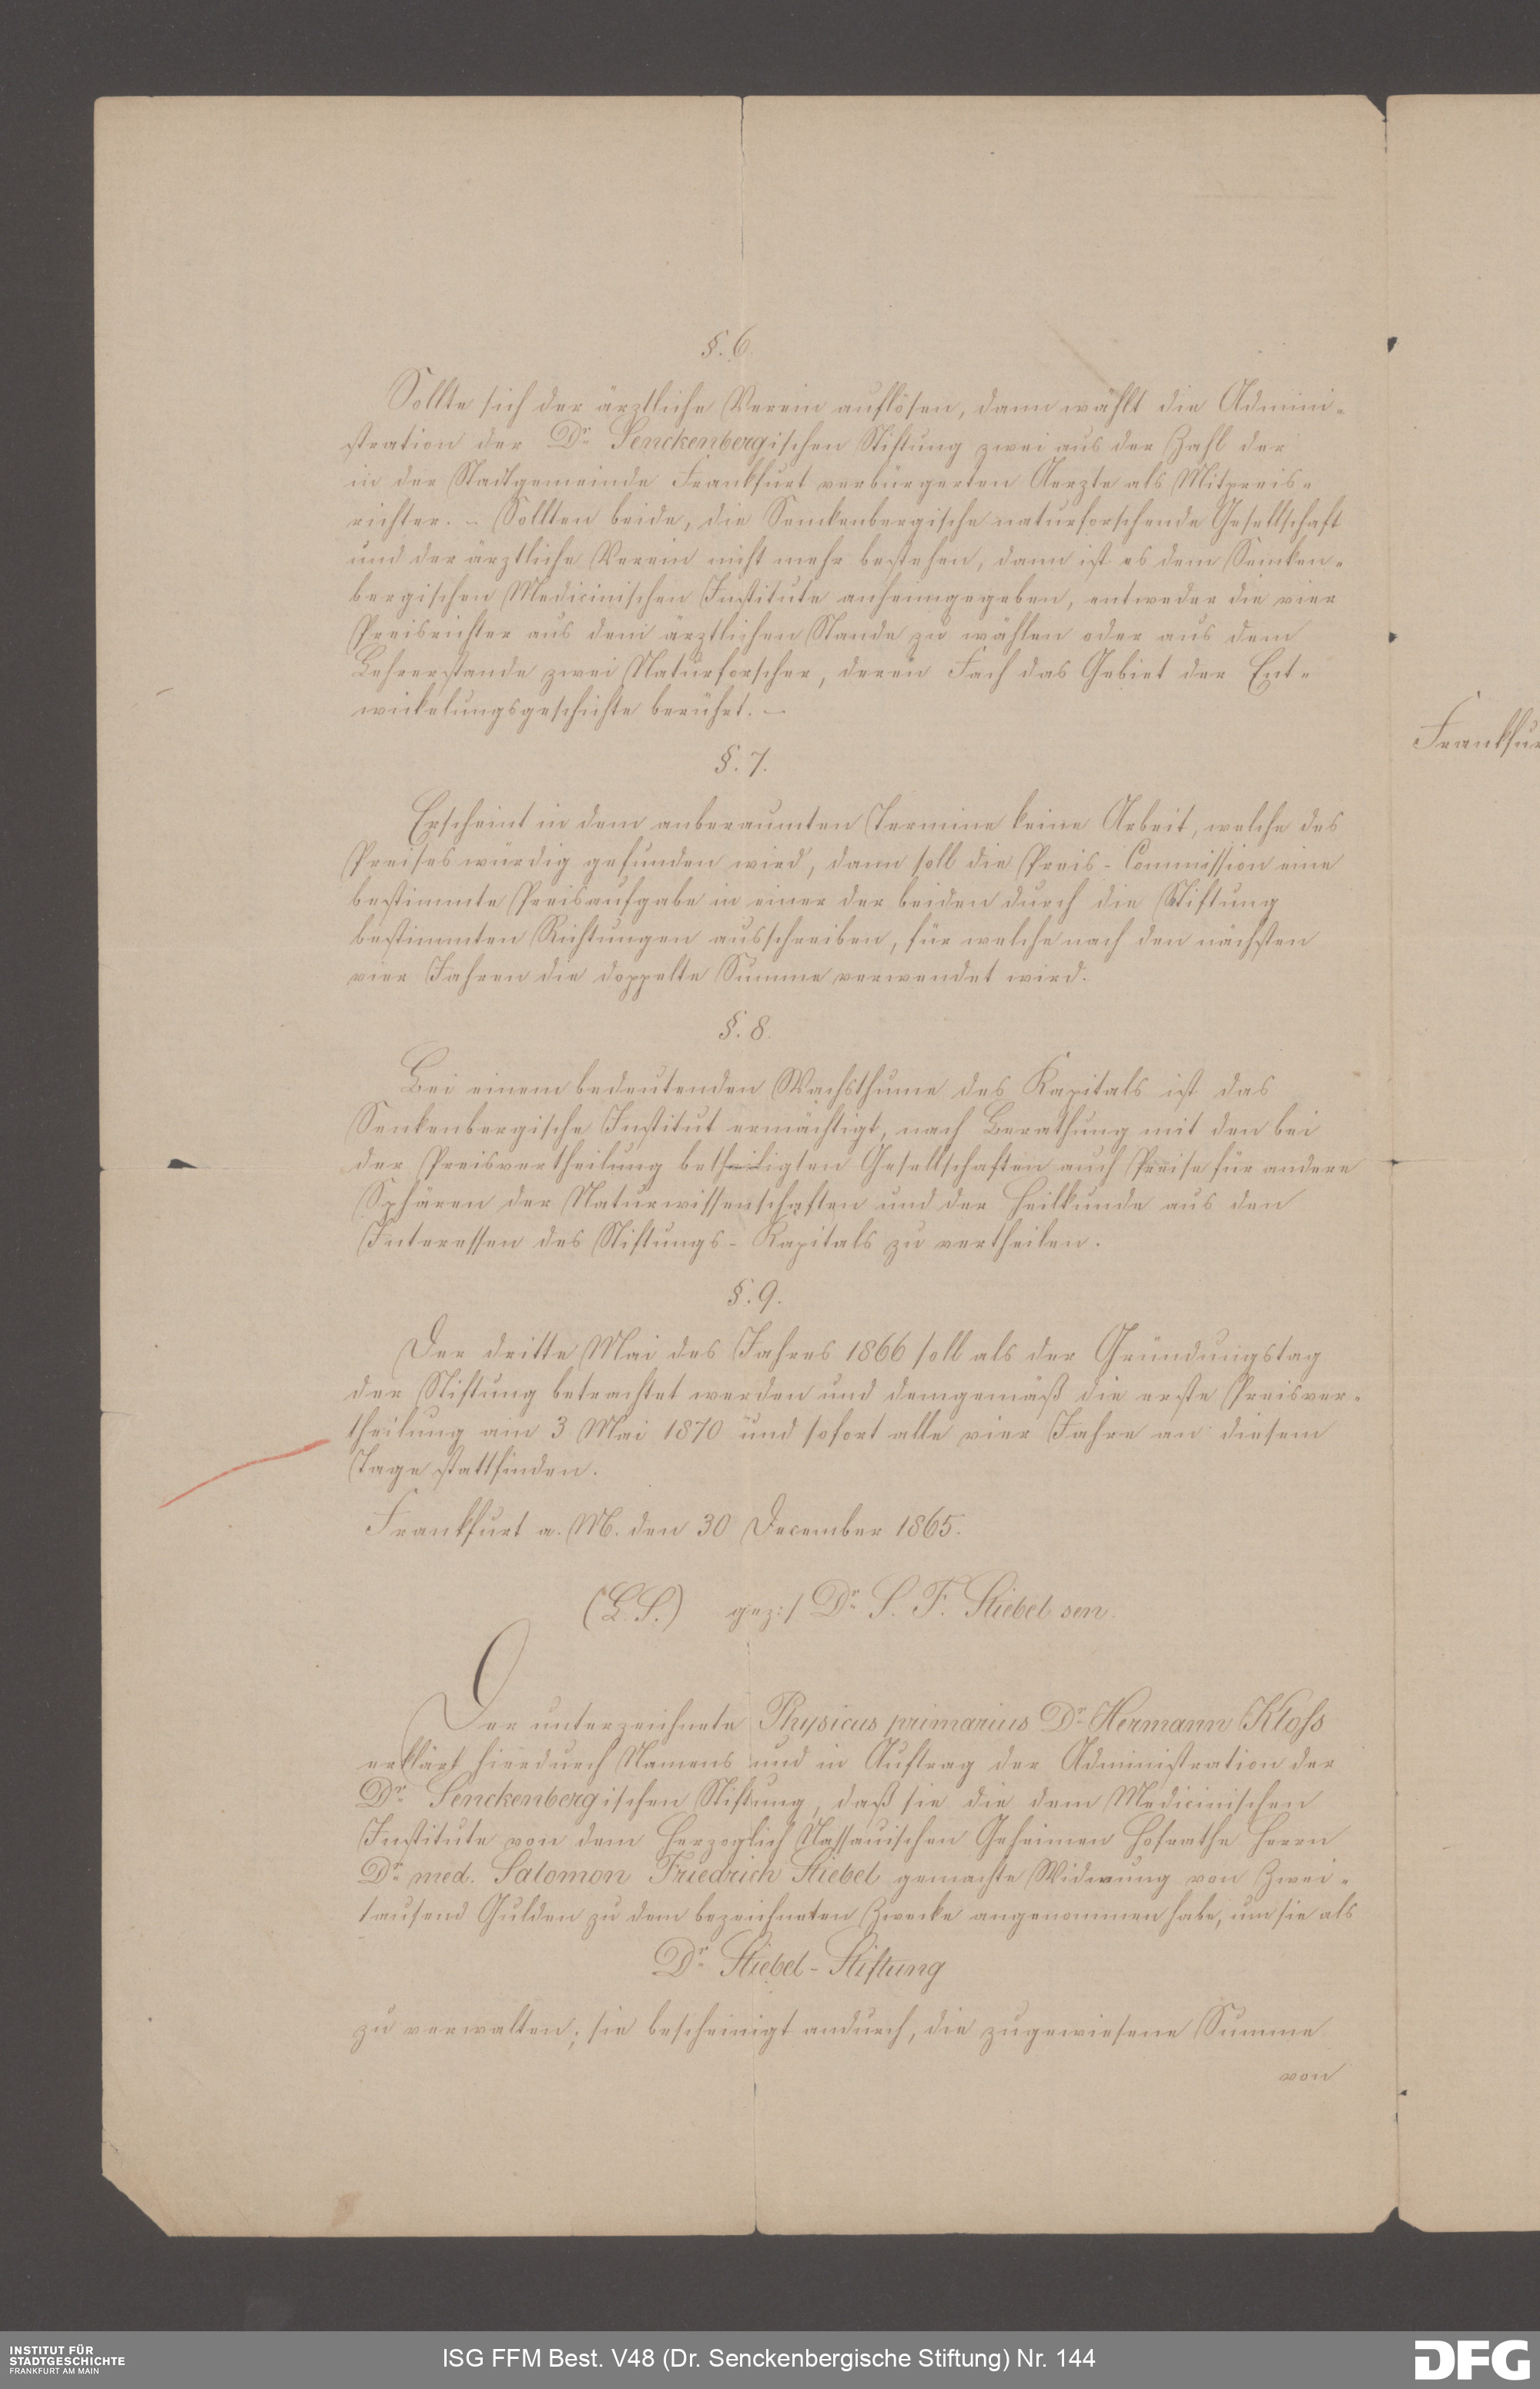 §. 6.
Sollte sich der ärztliche Verein auflösen, dann wählt die Admini-
stration der Dr. Senckenbergischen Stiftung zwei aus der Zahl der
in der Stadtgemeinde Frankfurt verbürgerten Aerzte als Mitpreis-
richter. – Sollten beide, die Senckenbergische naturforschende Gesellschaft
und der ärztliche Verein nicht mehr bestehen, dann ist es dem Sencken-
bergischen Medicinischen Institute anheimgegeben, entweder die vier
Preisrichter aus dem ärztlichen Stande zu wählen oder aus dem
Lehrerstande zwei Naturforscher, deren Fach das Gebiet der Ent-
wickelungsgeschichte berührt. –
§. 7.
Erscheint in dem anberaumten Termine keine Arbeit, welche des
Preises würdig gefunden wird, dann soll die Preis-Commission eine
bestimmte Preisaufgabe in einer der beiden durch die Stiftung
bestimmten Richtungen ausschreiben, für welche nach den nächsten
vier Jahren die doppelte Summe verwendet wird.
§. 8.
Bei einem bedeutenden Wachsthume des Kapitals ist das
Senkenbergische Institut ermächtigt, nach Berathung mit den bei
der Preisvertheilung betheiligten Gesellschaften auch Preise für andere
Sphären der Naturwissenschaften und der Heilkunde aus den
Interessen des Stiftungs-Kapitals zu vertheilen.
§. 9.
Der dritte Mai des Jahres 1866 soll als der Gründungstag
der Stiftung betrachtet werden und demgemäß die erste Preisver-
theilung am 3 Mai 1870 und sofort alle vier Jahre an diesem
Tage stattfinden.
Frankfurt a. M. den 30 December 1865.
(L. S.) gez:/ Dr. S. F. Stiebel sen.
Der unterzeichnete Physicus primarius Dr. Hermann Kloss
erklärt hierdurch Namens und in Auftrag der Administration der
Dr. Senckenbergischen Stiftung, daß sie die dem Medicinischen
Institute von dem Herzoglich Nassauischen Geheimen Hofrathe Herrn
Dr. med. Salomon Friedrich Stiebel gemachte Widmung von Zwei-
tausend Gulden zu dem bezeichneten Zwecke angenommen habe, um sie als
Dr. Stiebel-Stiftung
zu verwalten; sie bescheinigt andurch, die zugewiesene Summe
von
Frankfur
INSTITUT FÜR
STADTGESCHICHTE
FRANKFURT AM MAIN
ISG FFM Best. V48 (Dr. Senckenbergische Stiftung) Nr. 144
DFG